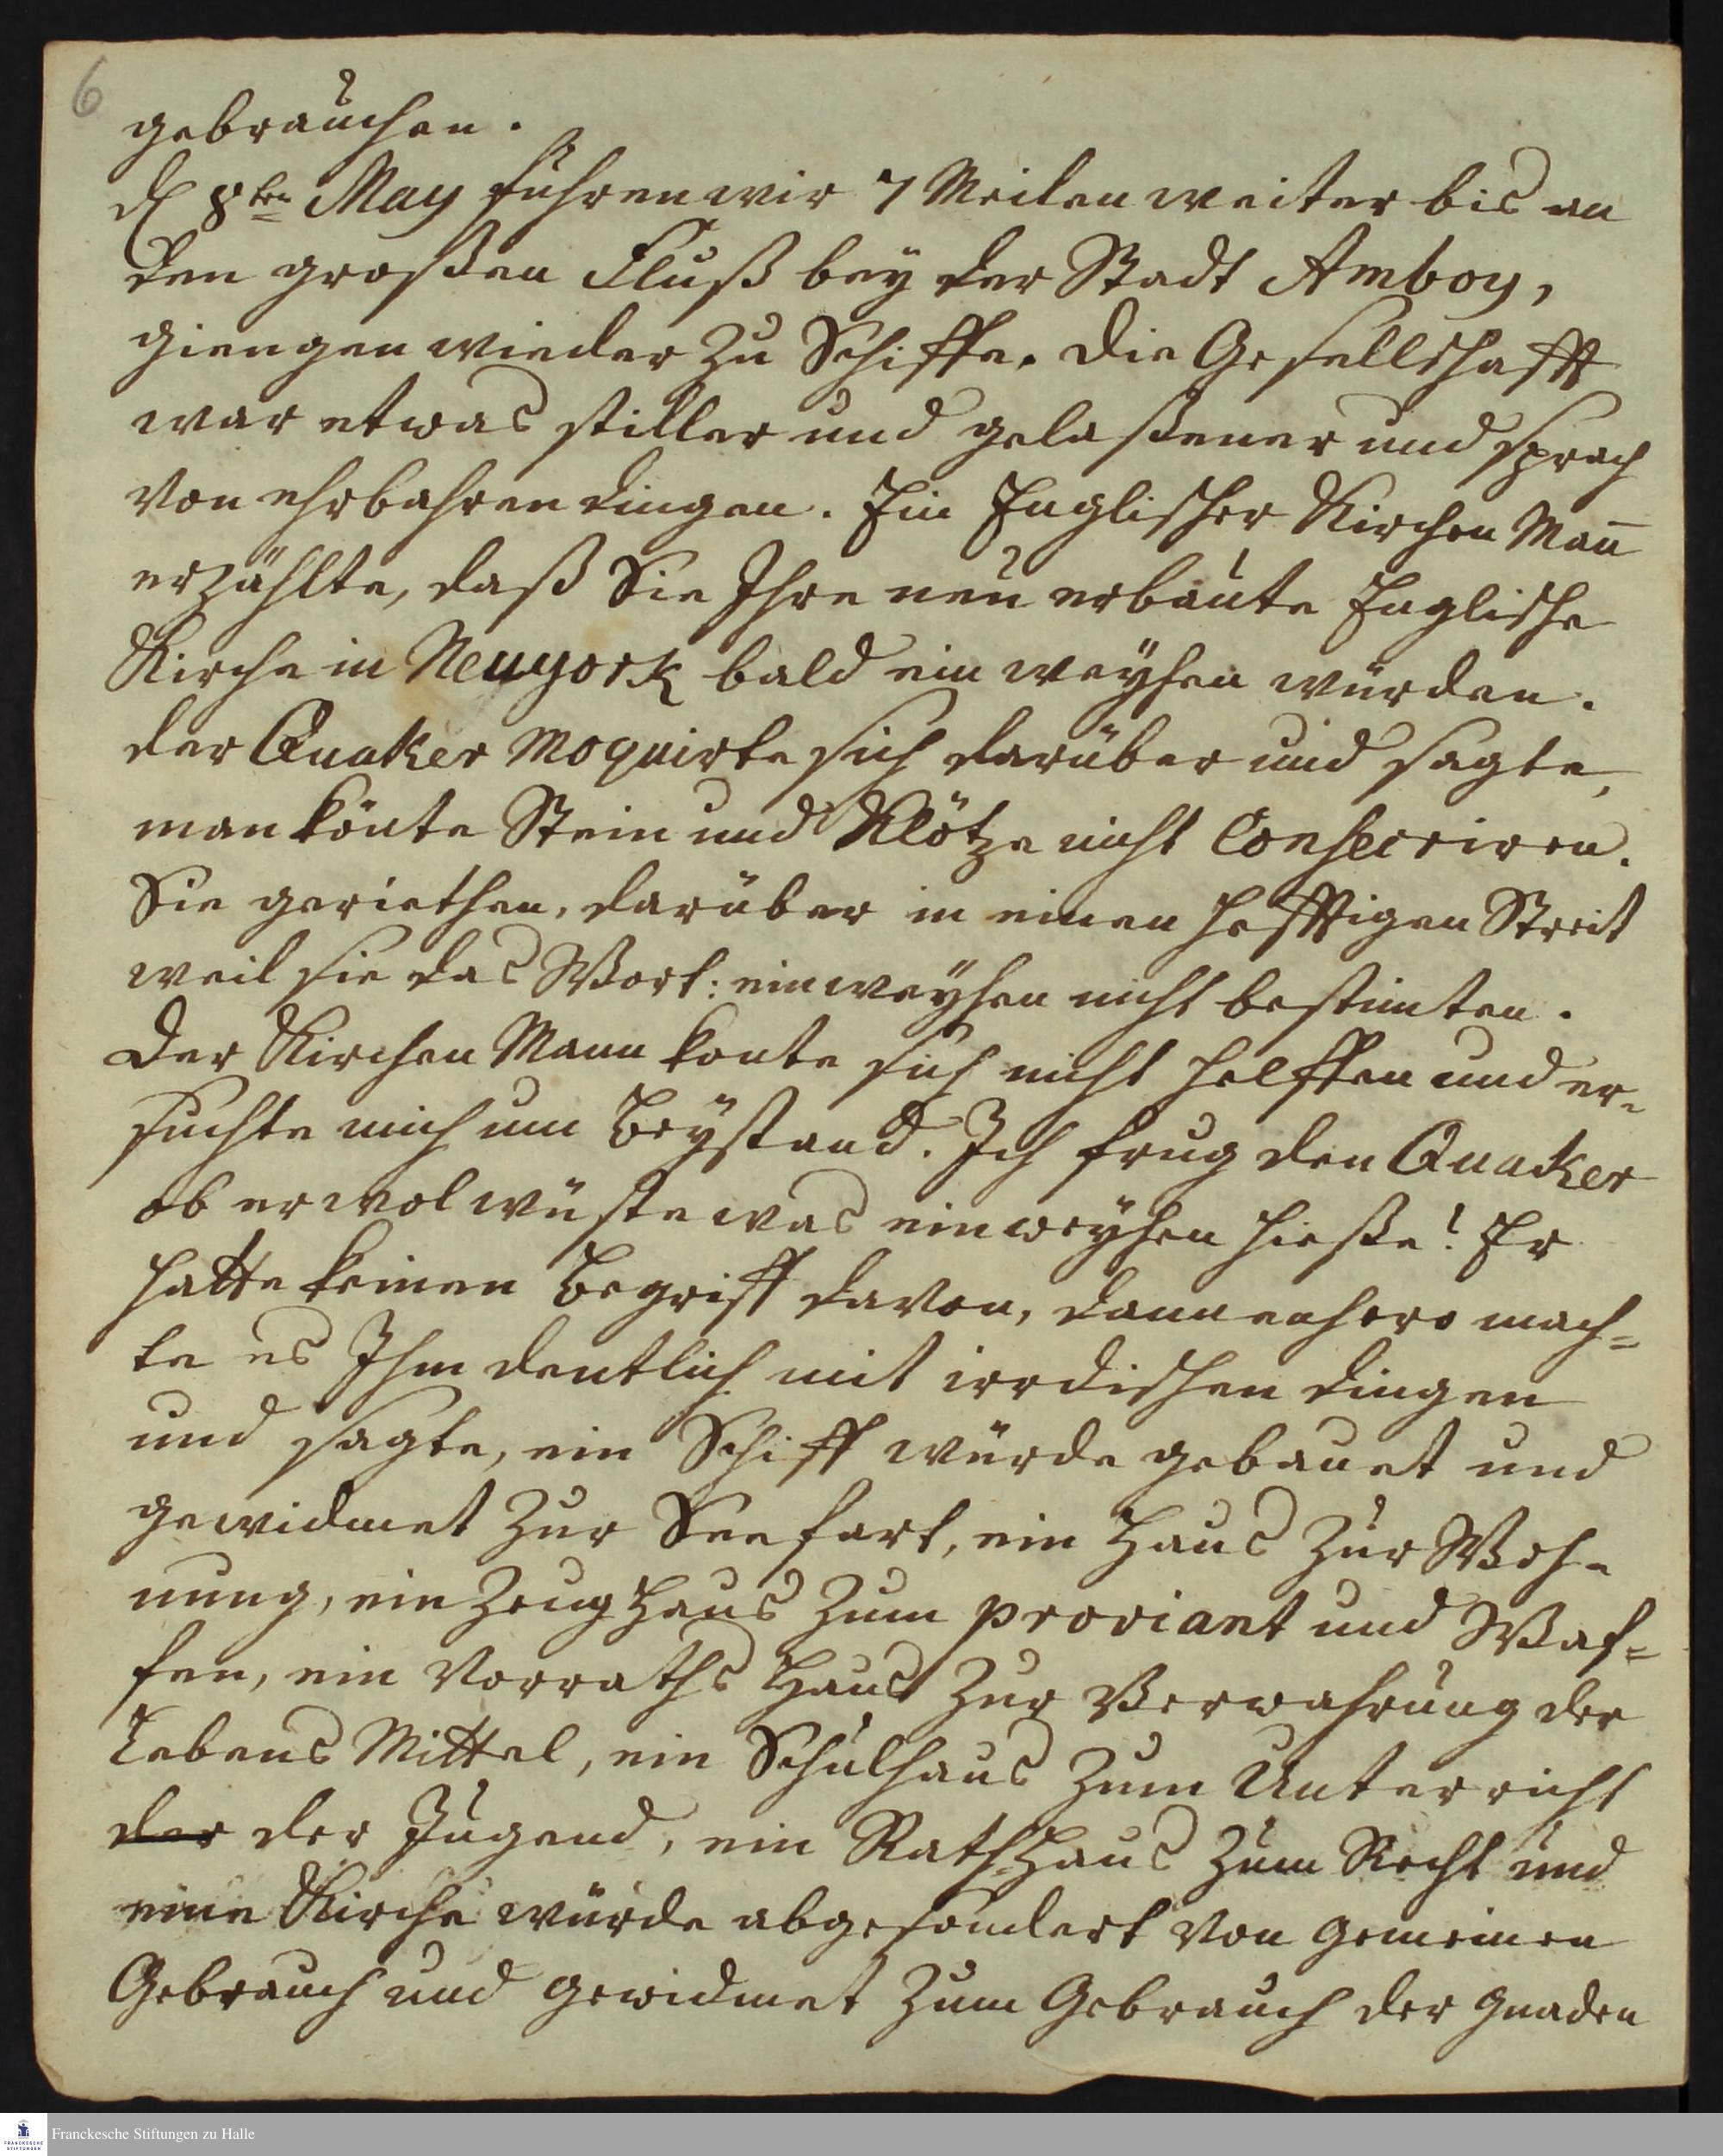 6
gebrauchen.
d 8ten May fuhren wir 7 Meilen weiter bis an
den großen Fluß bey der Stadt Amboy,
giengen wieder zu Schiffe. die Gesellschafft
war etwas stiller und gelaßener und sprach
von ehrbahren dingen. Ein Englischer Kirchen Man̄
erzählte, daß Sie Ihre neu erbaute Englische
Kirche in Neuyork bald ein weyhen würden.
der Quaker Moquirte sich darüber und sagte,
man könte Stein und Klötze nicht Consecriren.
Sie geriethen, darüber in einen hefftigen Streit
weil sie das Wort: einweyhen nicht bestimten.
Der Kirchen Mann konte sich nicht helffen und er-
suchte mich um Beystand. Ich frug den Quacker
ob er wol wüste was einweyhen hieße? Er
hatte keinen Begriff davon, dannenhero mach=
te es Ihm deutlich mit irrdischen dingen
und sagte, ein Schiff würde gebauet und
gewidmet zur Seefart, ein Haus zur Woh-
nung, ein Zeug Haus zum proviant und Waf=
fen, ein Vorraths Haus zur Verwahrung der
Lebens Mittel, ein Schulhaus zum Unterricht
der der Jugend, ein Raths-Haus zum Recht und
eine Kirche würde abgesondert von gemeinen
Gebrauch und gewidmet zum Gebrauch der gnaden
FRANCKESCHE STIFTUNGEN
Franckesche Stiftungen zu Halle